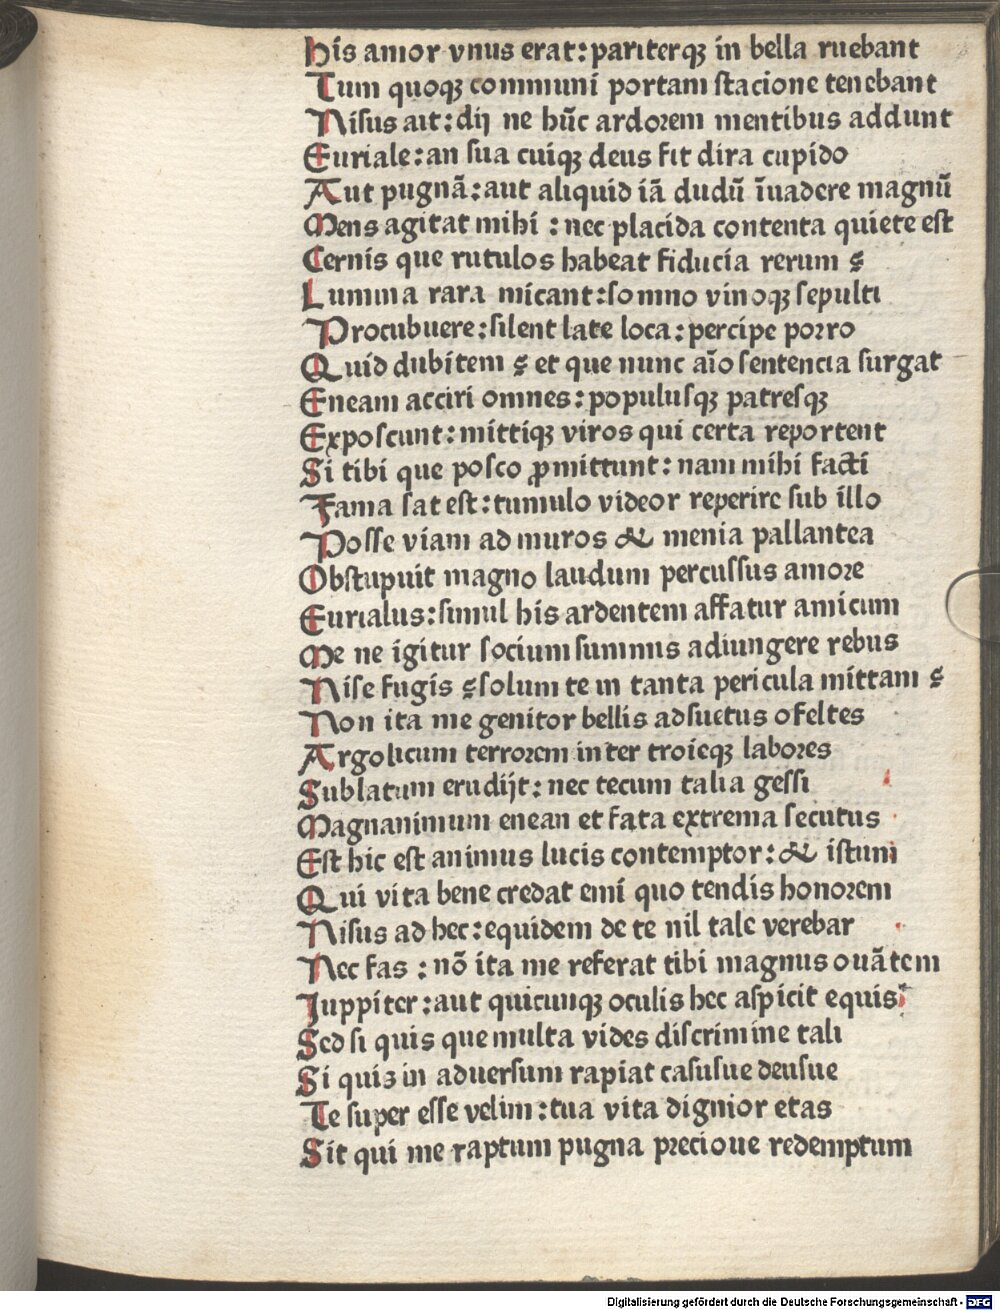 His amor vnus erat: pariterqȝ in bella ruebant
Tum quoqȝ communi portam stacione tenebant
Nisus ait: dij ne hūc ardorem mentibus addunt
Euriale: an sua cuiqȝ deus fit dira cupido
Aut pugnā: aut aliquid iā dudū īuadere magnū
Mens agitat mihi : nec placida contenta quiete est
Cernis que rutulos habeat fiducia rerum ?
Lumina rara micant: somno vinoqȝ sepulti
Procubuere: silent late loca: percipe porro
Quid dubitem ? et que nunc aīo sentencia surgat
Eneam acciri omnes: populusqȝ patresqȝ
Exposcunt: mittiqȝ viros qui certa reportent
Si tibi que posco ꝓmittunt: nam mihi facti
Fama sat est: tumulo videor reperire sub illo
Posse viam ad muros & menia pallantea
Obstupuit magno laudum percussus amore
Eurialus: simul his ardentem affatur amicum
Me ne igitur socium summis adiungere rebus
Nise fugis ? solum te in tanta pericula mittam ?
Non ita me genitor bellis adsuetus ofeltes
Argolicum terrorem inter troieqȝ labores
Sublatum erudijt: nec tecum talia gessi
Magnanimum enean et fata extrema secutus
Est hic est animus lucis contemptor: & istum
Qui vita bene credat emi quo tendis honorem
Nisus ad hec: equidem de te nil tale verebar
Nec fas : nō ita me referat tibi magnus ouātem
Juppiter: aut quicunqȝ oculis hec aspicit equis
Sed si quis que multa vides discrimine tali
Si quis in aduersum rapiat casusue deusue
Te super esse velim: tua vita dignior etas
Sit qui me raptum pugna precioue redemptum
Digitalisierung gefördert durch die Deutsche Forschungsgemeinschaft - DFG